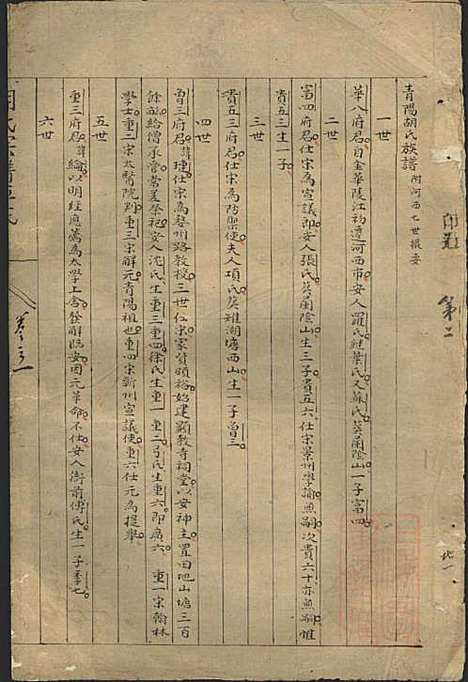 青陽胡氏族譜附河西七世捄委
一世
華八府君自金華陵江初遷河西市安人羅氏繼葉氏又蘇氏葬蘭陰山一子富四
二世
富四府君仕宋為宣議郎安人張氏葬蘭陰山生三子貴五六仕宋景州學諭無嗣次貴六十亦無嗣惟
貴五三生一子
三世
貴五三府君仕宋為防禦使夫人項氏葬雉湖塘西山生一子曾三
四世
曾三府君諱璉仕宋為婺州路教授三世仁宋家貲頗裕始建顯教寺祠堂以安神主置田地山塘三百
餘畝給僧承管常奉祭祀安人沈氏生重三重四徐氏生重一重二弓氏生重六即廣六重一宋翰林
學士重二宋太醫院判重三宋解元青陽祖也重四宋新州宣議使重六仕元為提舉
五世
重三府君諱綸以明經應薦為太學上舍發解臨安因元革命不仕安人衛前傅氏生一子季七
六世
卷之一
第二